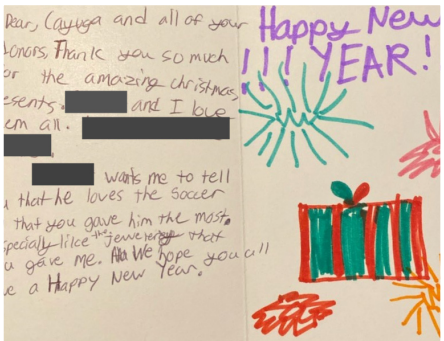 Dear, Cayuga and all of your
donors, Thank you so much
or the amazing christmas
esents. and I love
em all.
wants me to tell
u that he loves the soccer
that you gave him the most.
specially like the jewelery that
u gave me. We hope you all
e a Happy New Year.
Happy New
!!! YEAR!